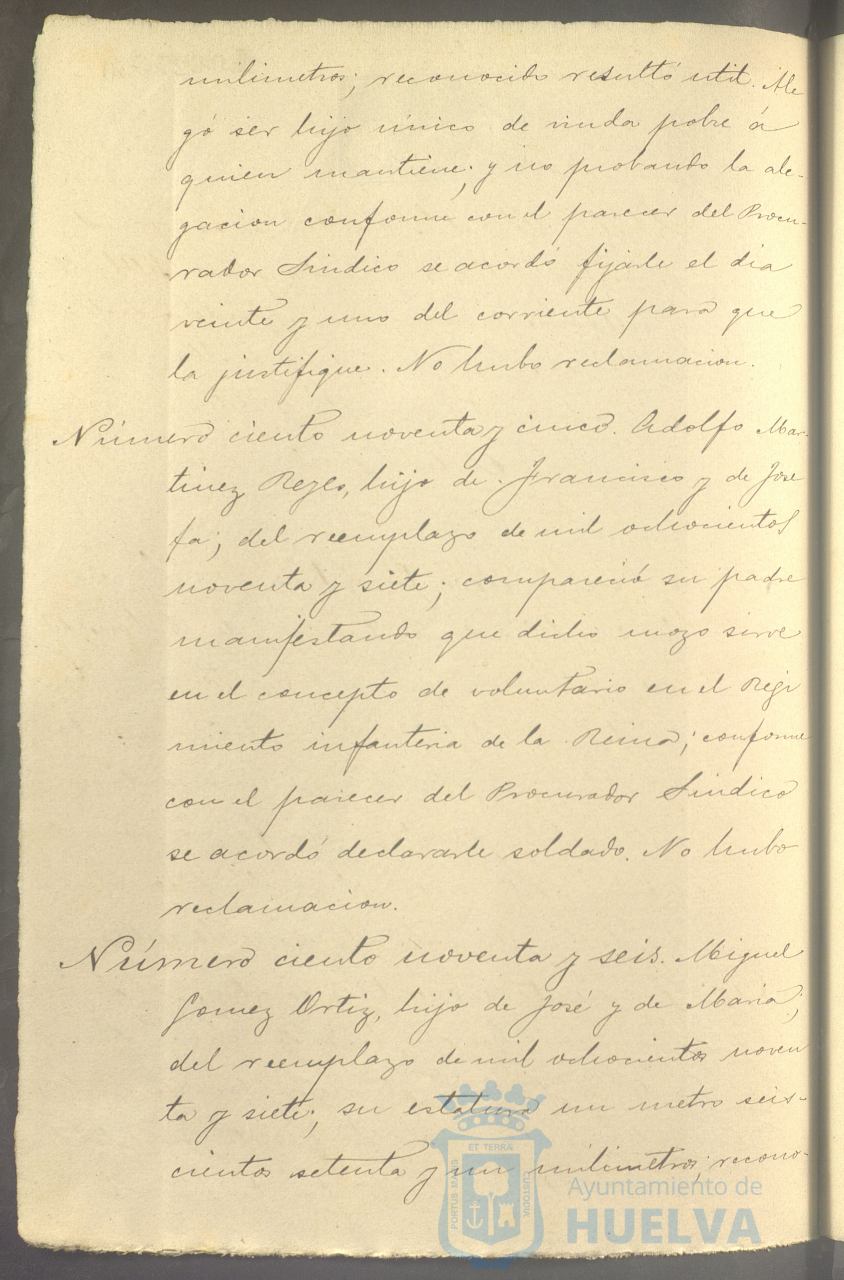 milimetros; reconocido resultó util. Ale
gó ser hijo único de viuda pobre á
quien mantiene; y no probando la ale-
gacion conforme con el parecer del Procu-
rador Sindico se acordó fijarle el dia
veinte y uno del corriente para que
la justifique. No hubo reclamacion.
Número ciento noventa y cinco. Adolfo Mar-
tinez Reyes, hijo de Francisco y de Jose
fa; del reemplazo de mil ochocientos
noventa y siete; compareció su padre
manifestando que dicho mozo sirve
en el concepto de voluntario en el Regi
miento infanteria de la Reina; conforme
con el parecer del Procurador Sindico
se acordó declararle soldado. No hubo
reclamacion.
Número ciento noventa y seis. Miguel
Gomez Ortiz, hijo de José y de Maria;
del reemplazo de mil ochocientos noven
ta y siete; su estatura un metro seis-
cientos setenta y un milimetros; recono-
PORTUS MARIS ET TERRAE CUSTODIA
Ayuntamiento de
HUELVA